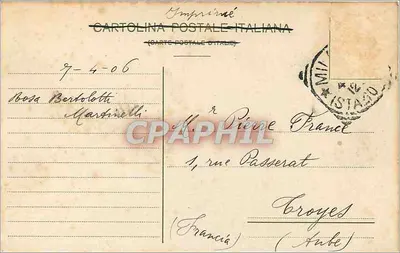 Imprimé
CARTOLINA POSTALE ITALIANA
(CARTE POSTALE D'ITALIE)
7-4-06
Rosa Bertolotti
Martinelli
Mr Pierre France
1, rue Passerat
Troyes
(Francia)
(Aube)
CPAPHIL